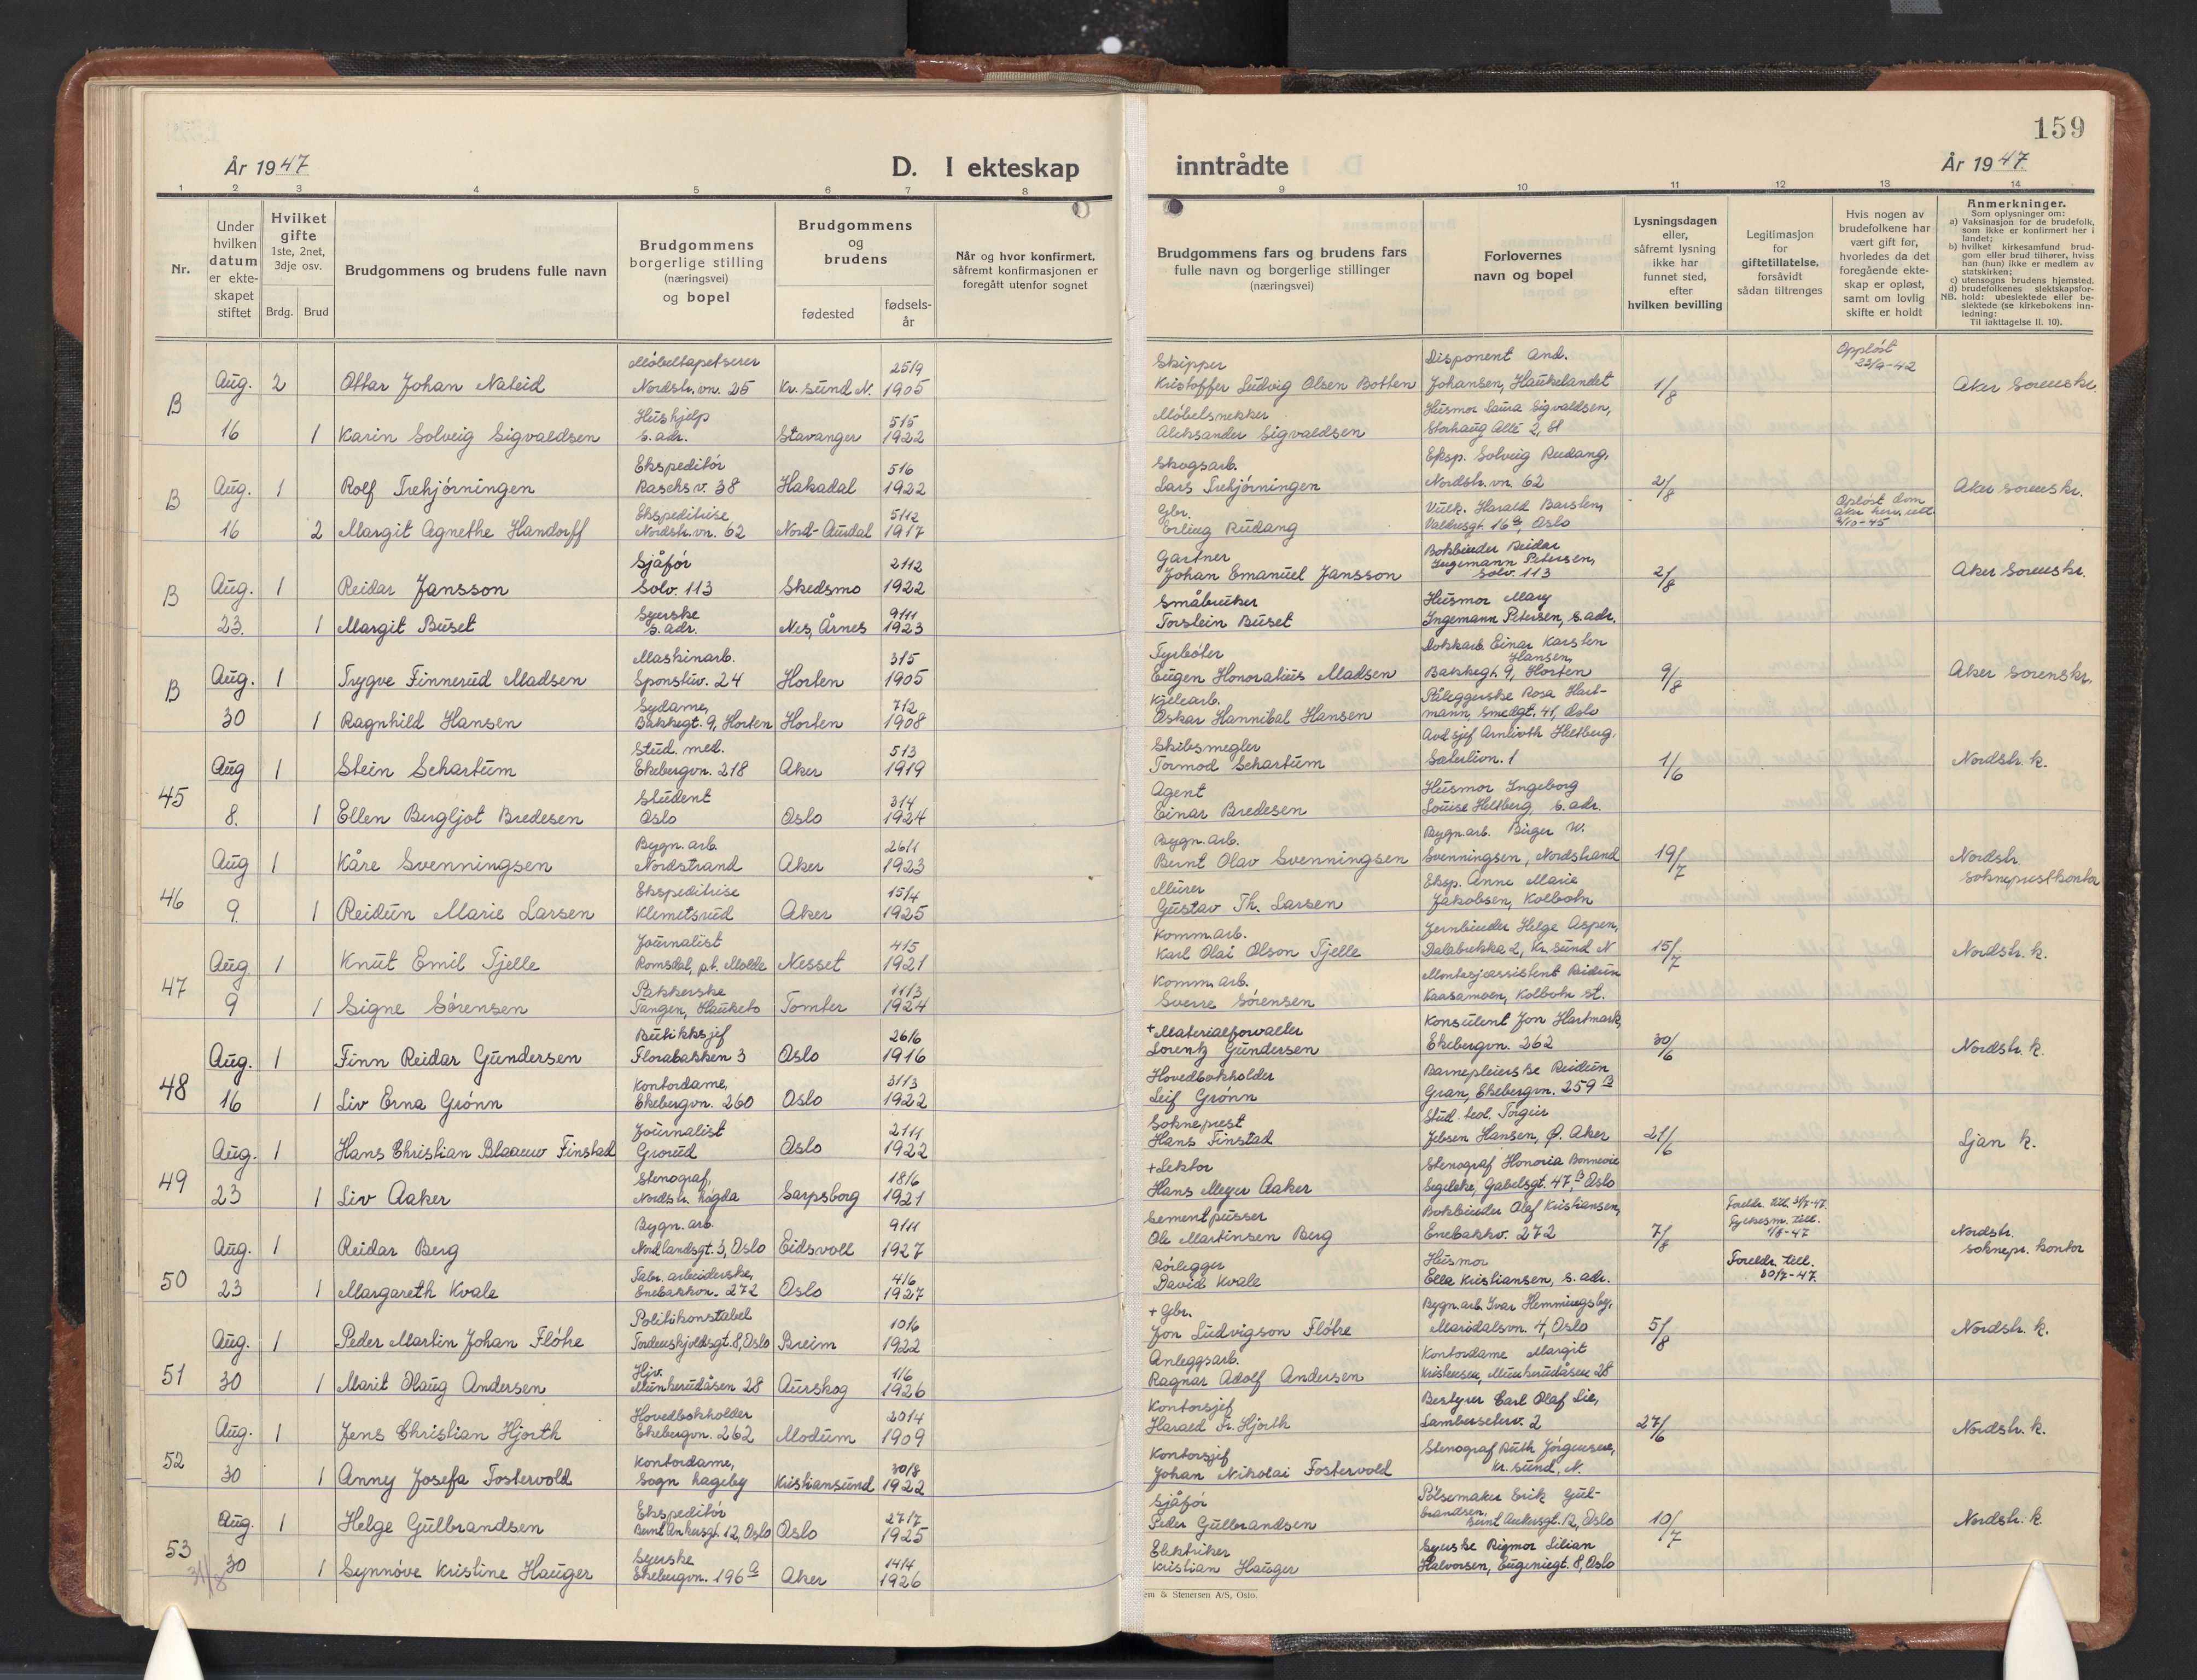 159
År 1947
D. I ekteskap inntrådte
År 1947
1 2 3 4 5 6 7 8 9 10 11 12 13 14
Nr.
Under hvilken datum er ekteskapet stiftet
Hvilket gifte 1ste, 2net, 3dje osv.
Brdg. Brud
Brudgommens og brudens fulle navn
Brudgommens borgerlige stilling (næringsvei) og bopel
Brudgommens og brudens
fødested
fødsels-år
Når og hvor konfirmert, såfremt konfirmasjonen er foregått utenfor sognet
Brudgommens fars og brudens fars fulle navn og borgerlige stillinger (næringsvei)
Forlovernes navn og bopel
Lysningsdagen eller, såfremt lysning ikke har funnet sted, efter hvilken bevilling
Legitimasjon for giftetillatelse, forsåvidt sådan tiltrenges
Hvis nogen av brudefolkene har vært gift før, hvorledes da det foregående ekteskap er opløst, samt om lovlig skifte er holdt
Anmerkninger.
Som oplysninger om:
a) Vaksinasjon for de brudefolk, som ikke er konfirmert her i landet;
b) hvilket kirkesamfund brudgom eller brud tilhører, hviss han (hun) ikke er medlem av statskirken;
c) utensogns brudens hjemsted.
d) brudefolkenes slektskapsforhold: ubeslektede eller beslektede (se kirkebokens innledning:
NB. Til iakttagelse II. 10).
B Aug. 2 Ottar Johan Nateid Møbeltapetserer Nordstr.vn. 25 Kr.sund N. 25/9 1905 Skipper Kristoffer Ludvig Olsen Botten Disponent And. Johansen, Haukelandet 1/8 Oppløst 23/9-42 Aker Sorenskr.
16 1 Karin Solveig Sigvaldsen Hushjelp s. adr. Stavanger 5/5 1922 Møbelsnekker Aleksander Sigvaldsen Husmor Laura Sigvaldsen, Storhaug Allé 2, St
B Aug. 1 Rolf Trehjørningen Ekspeditør Raschs v. 38 Hakadal 5/6 1922 Skogsarb. Lars Trehjørningen Eksp. Solveig Rudang, Nordstr.vn. 62 2/8 Aker sorenskr.
16 2 Margit Agnethe Handorff Ekspeditrise Nordstr.vn. 62 Nord-Aurdal 5/12 1917 Gbr. Erling Rudang Vulk. Harald Barsten, Valdresgt. 16a, Oslo Opløst dom Aker herr. rett 2/10-45
B Aug. 1 Reidar Jansson Sjåfør Solv. 113 Skedsmo 21/2 1922 Gartner Johan Emanuel Jansson Bokbinder Reidar Ingemann Petersen, Solv. 113 2/8 Aker Sorenskr.
23. 1 Margit Buset Syerske s. adr. Nes, Årnes 9/11 1923 Småbruker Torstein Buset Husmor Mary Ingemann Petersen, s. adr.
B Aug. 1 Trygve Finnerud Madsen Maskinarb. Sponstuv. 24 Horten 31/5 1905 Fyrbøter Eugen Honoratius Madsen Dokkarb. Einar Karsten Hansen, Bakkegt. 9, Horten 9/8 Aker Sorenskr.
30 1 Ragnhild Hansen Sydame, Bakkegt. 9, Horten Horten 7/2 1908 Kjelearb. Oskar Hannibal Hansen Påleggerske Rosa Hartmann, Smedgt. 41, Oslo
45 Aug 1 Stein Schartum Stud. med. Ekebergvn. 218 Aker 5/3 1919 Skibsmegler Tormod Schartum Avd sjef Arnlioth Heltberg, Sæterlivn. 1 1/6 Nordstr. k.
8. 1 Ellen Bergljot Bredesen Student Oslo Oslo 3/4 1924 Agent Einar Bredesen Husmor Ingeborg Louise Heltberg, s. adr.
46 Aug 1 Kåre Svenningsen Bygn. arb. Nordstrand Aker 26/1 1923 Bygn. arb. Bernt Olav Svenningsen Bygn. arb. Birger W. Svenningsen, Nordstrand 19/7 Nordstr. sokneprestkontor
9. 1 Reidun Marie Larsen Ekspeditrise Klemetsrud Aker 15/4 1925 Murer Gustav Th. Larsen Eksp. Anne Marie Jakobsen, Kolbotn
47 Aug. 1 Knut Emil Tjelle Journalist Romsdal, p.t. Molde Nesset 4/5 1921 Komm. arb. Karl Olai Olson Tjelle Jernbinder Helge Aspen, Dalabukka 2, Kr.sund N 15/7 Nordstr. k.
9 1 Signe Sørensen Pakkerske Tangen, Hauketo Tomter 11/3 1924 Komm. arb. Sverre Sørensen Montasjeassistent Reidun Kaasamoen, Kolbotn st.
48 Aug. 1 Finn Reidar Gundersen Butikksjef Florabakken 3 Oslo 26/6 1916 + Materialforvalter Lorentz Gundersen Konsulent Jon Hartmark, Ekebergvn. 262 30/6 Nordstr. k.
16 1 Liv Erna Grønn Kontordame, Ekebergvn. 260 Oslo 31/3 1922 Hovedbokholder Leif Grønn Barnepleierske Reidun Gran, Ekebergvn. 259 B
49 Aug. 1 Hans Christian Blaauw Finstad Journalist Grorud Oslo 21/1 1922 Sokneprest Hans Finstad Stud. teol. Torgeir Jebsen Hansen, Ø. Aker 21/6 Ljan k.
23 1 Liv Aaker Stenograf, Nordstr. høgda Sarpsborg 18/6 1921 + Lektor Hans Meyer Aaker Stenograf Honoria Bonnevie Segelcke, Gabelsgt. 47, B Oslo
50 Aug. 1 Reidar Berg Bygn. arb. Nordlandsgt. 3, Oslo Eidsvoll 9/11 1927 Sementpusser Ole Martinsen Berg Bokbinder Olaf Kristiansen, Enebakkv. 272 7/8 Foreldr. till. 31/7-47. Fylkesm. till. 1/8-47 Nordstr. soknepr. kontor
23 1 Margareth Kvale Fabr. arbeiderske, Enebakkvn. 272 Oslo 4/6 1927 Rørlegger David Kvale Husmor Ella Kristiansen, s. adr. Foreldr. till. 30/7-47.
51 Aug. 1 Peder Martin Johan Fløtre Politikonstabel Tordenskjoldsgt. 8, Oslo Breim 10/6 1922 + Gbr. Jon Ludvigson Fløtre Bygn. arb. Ivar Hemmingsby, Maridalsvn. 4, Oslo 5/8 Nordstr. k.
30 1 Marit Olaug Andersen Hjv. Munkerudåsen 28 Aurskog 1/6 1926 Anleggsarb. Ragnar Adolf Andersen Kontordame Margit Kristensen, Munkerudåsen 28
52 Aug. 1 Jens Christian Hjorth Hovedbokholder Ekebergvn. 262 Modum 20/4 1909 Kontorsjef Harald Fr. Hjorth Bestyrer Carl Olaf Lie, Lamberseterv. 2 27/6 Nordstr. k.
30 1 Anny Josefa Fostervold Kontordame, Sogn hageby Kristiansund 30/8 1922 Kontorsjef Johan Nikolai Fostervold Stenograf Ruth Jørgensen, Kr.sund, N.
53 Aug. 1 Helge Gulbrandsen Ekspeditør Bernt Ankersgt. 12, Oslo Oslo 27/7 1925 Sjåfør Peder Gulbrandsen Pølsemaker Erik Gulbrandsen, Bernt Ankersgt. 12, Oslo 10/7 Nordstr. k.
31/8 30 1 Synnøve Kristine Hauger Syerske Ekebergvn. 196 a Aker 14/4 1926 Elektriker Kristian Hauger Syerske Rigmor Lilian Halvorsen, Eugeniegt. 8, Oslo
em & Stenersen A/S, Oslo.